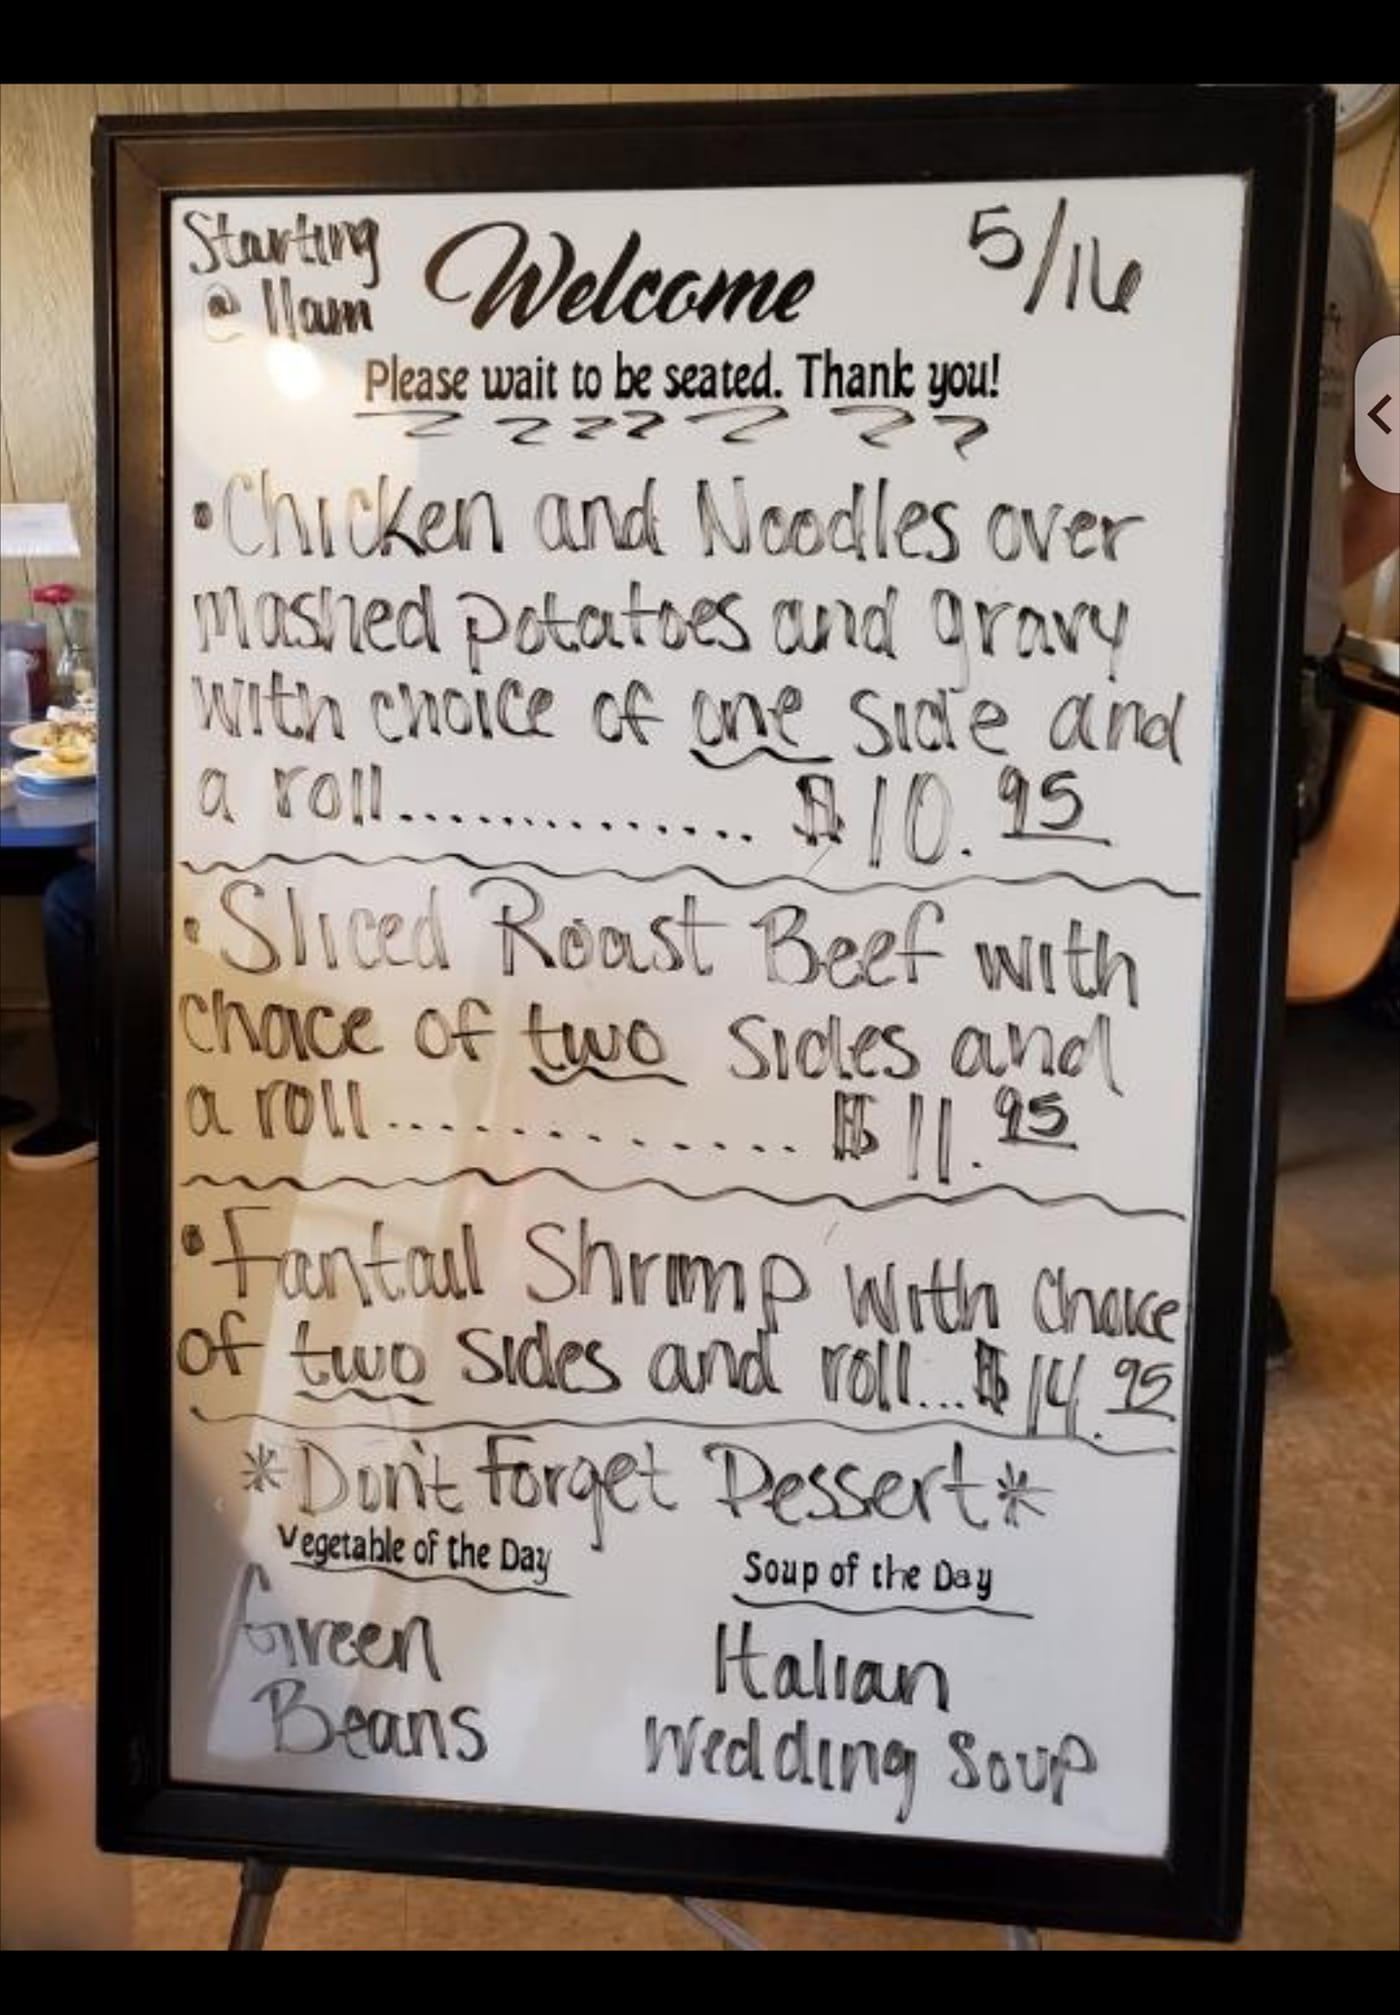 Starting
@ 11am
Welcome
5/16
Please wait to be seated. Thank you!
• Chicken and Noodles over
mashed potatoes and gravy
with choice of one side and
a roll.............. $10.95
• Sliced Roast Beef with
choice of two sides and
a roll............. $11.95
• Fantail Shrimp with choice
of two sides and roll...$14.95
*Don't Forget Dessert*
Vegetable of the Day
Green
Beans
Soup of the Day
Italian
Wedding Soup